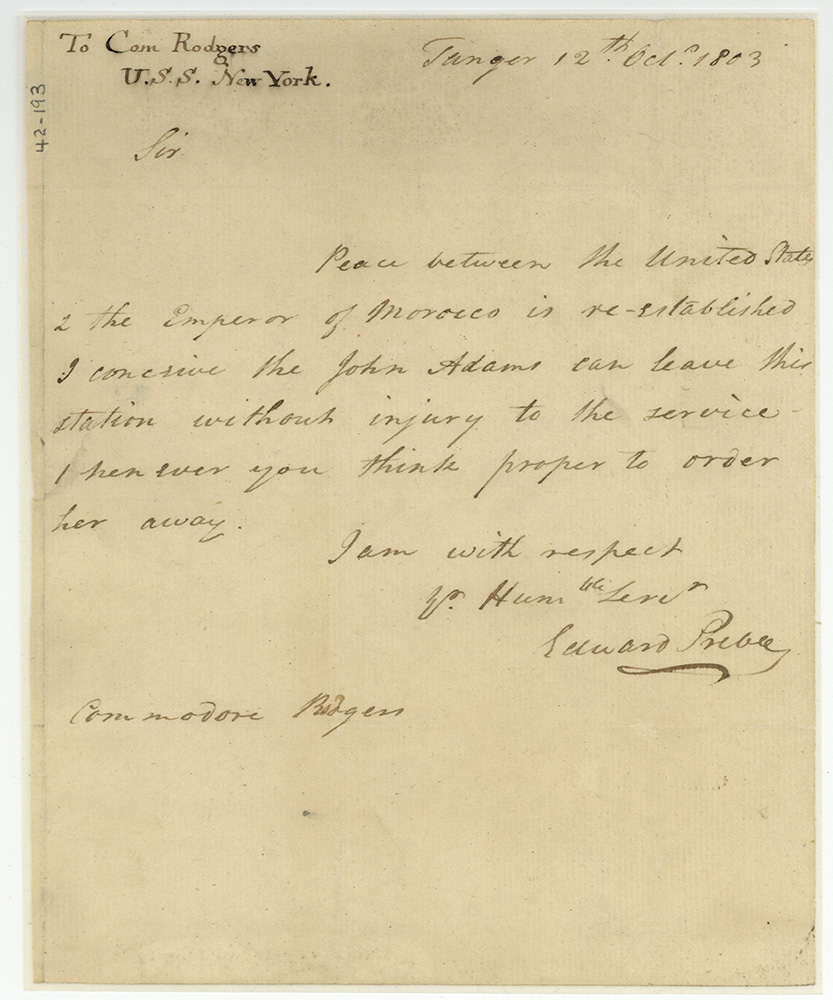 To Com Rodgers
U.S.S. New York.
42-193
Tanger 12th Octr. 1803
Sir
Peace between the United States
& the Emperor of Morocco is re-established
I conceive the John Adams can leave this
station without injury to the service -
whenever you think proper to order
her away.
I am with respect
Yr. Humble Servr
Edward Preble
Commodore Rodgers